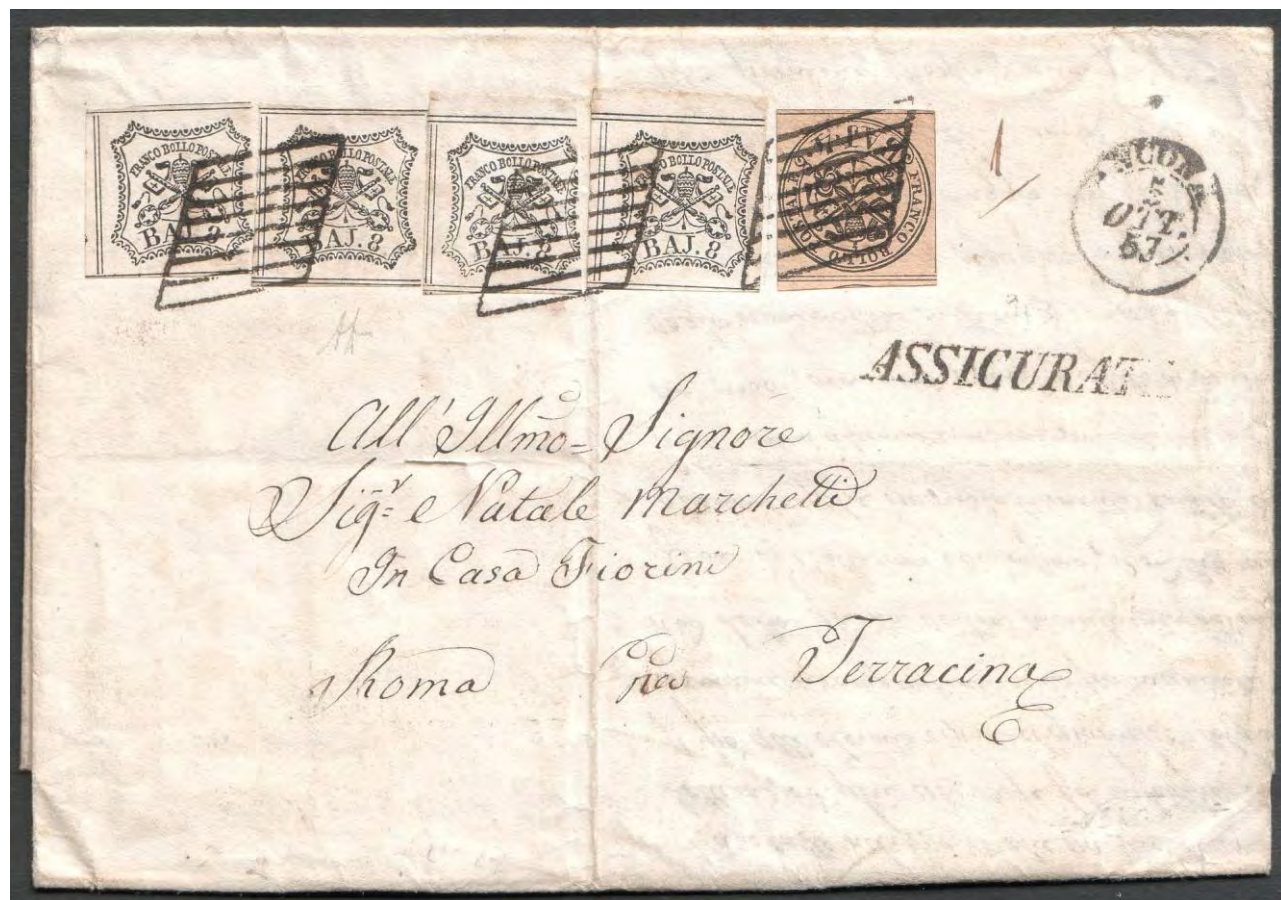 FRANCO BOLLO POSTALE
BAJ. 8
FRANCO BOLLO POSTALE
BAJ. 8
FRANCO BOLLO POSTALE
BAJ. 8
FRANCO BOLLO POSTALE
BAJ. 8
FRANCO BOLLO
1
ANCONA
5
OTT.
57
ASSICURATA
All' Illmo= Signore
Sigr= Natale Marchetti
In Casa Fiorini
Roma per Terracina